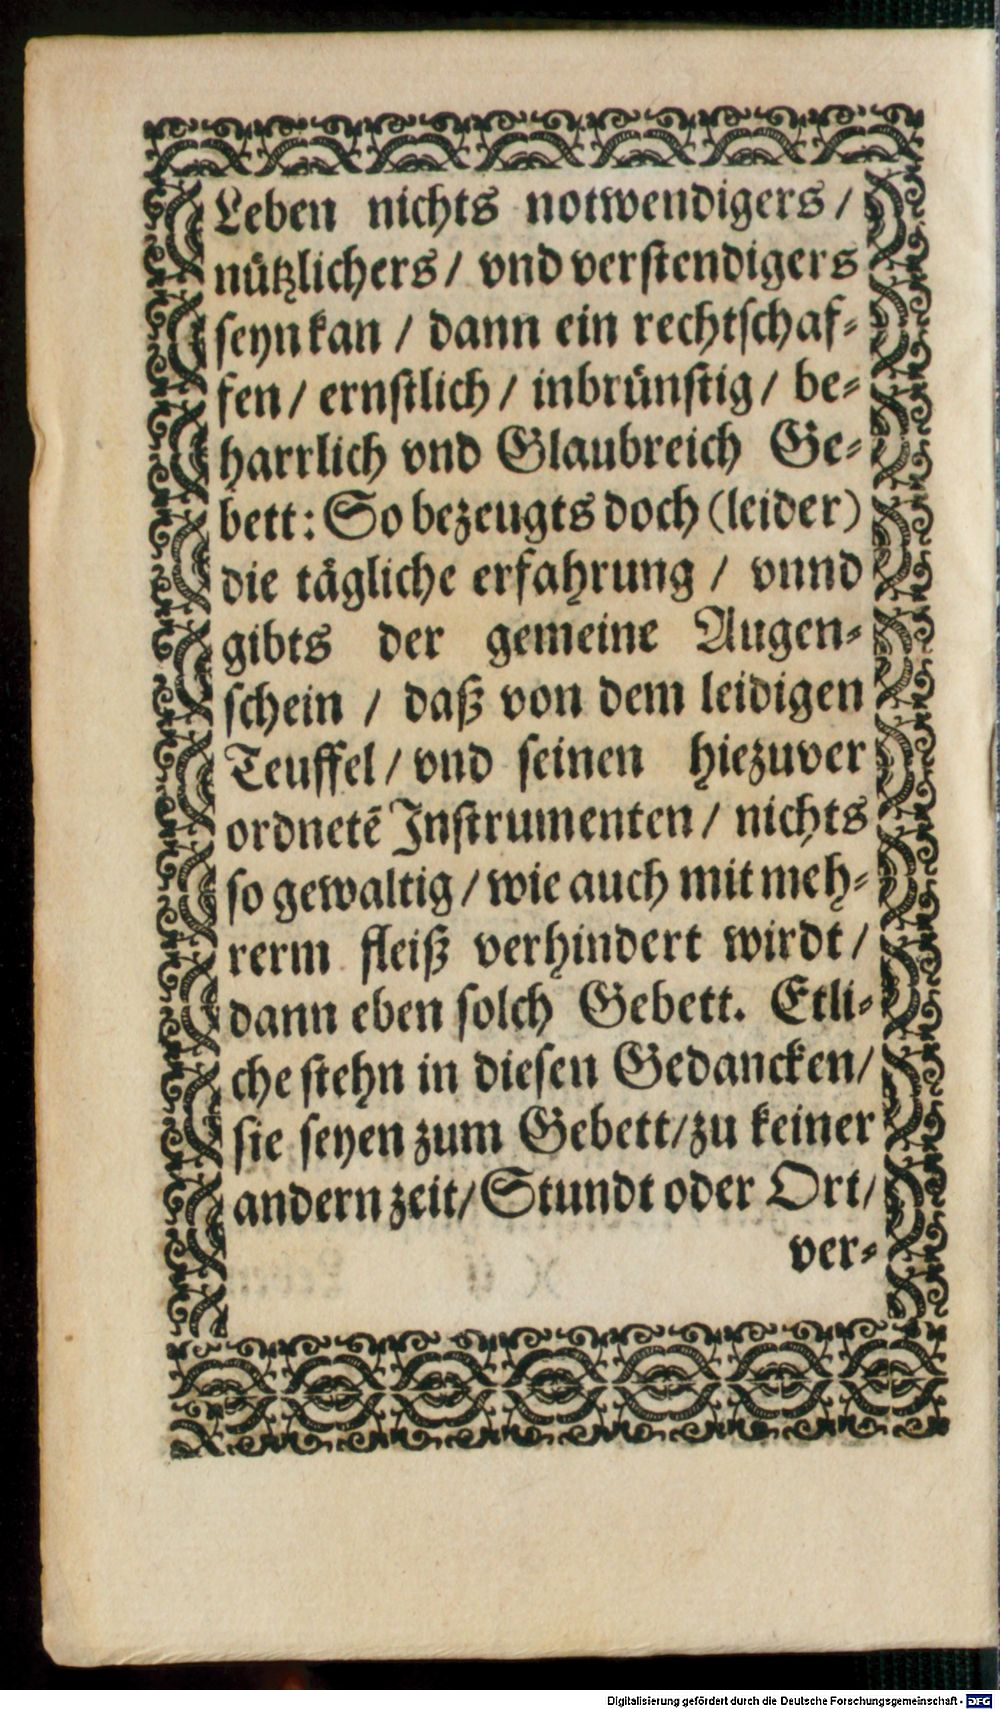 Leben nichts notwendigers /
nützlichers / vnd verstendigers
seyn kan / dann ein rechtschaf-
fen / ernstlich / inbrünstig / be-
harrlich vnd Glaubreich Ge-
bett: So bezeugts doch (leider)
die tägliche erfahrung / vnnd
gibts der gemeine Augen-
schein / daß von dem leidigen
Teuffel / vnd seinen hiezuver
ordnetẽ Instrumenten / nichts
so gewaltig / wie auch mit meh-
rerm fleiß verhindert wirdt /
dann eben solch Gebett. Etli-
che stehn in diesen Gedancken /
sie seyen zum Gebett / zu keiner
andern zeit / Stundt oder Ort /
ver-
Digitalisierung gefördert durch die Deutsche Forschungsgemeinschaft - DFG